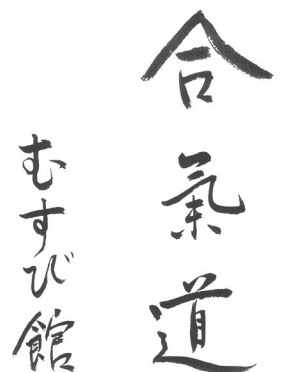 合氣道
むすび館